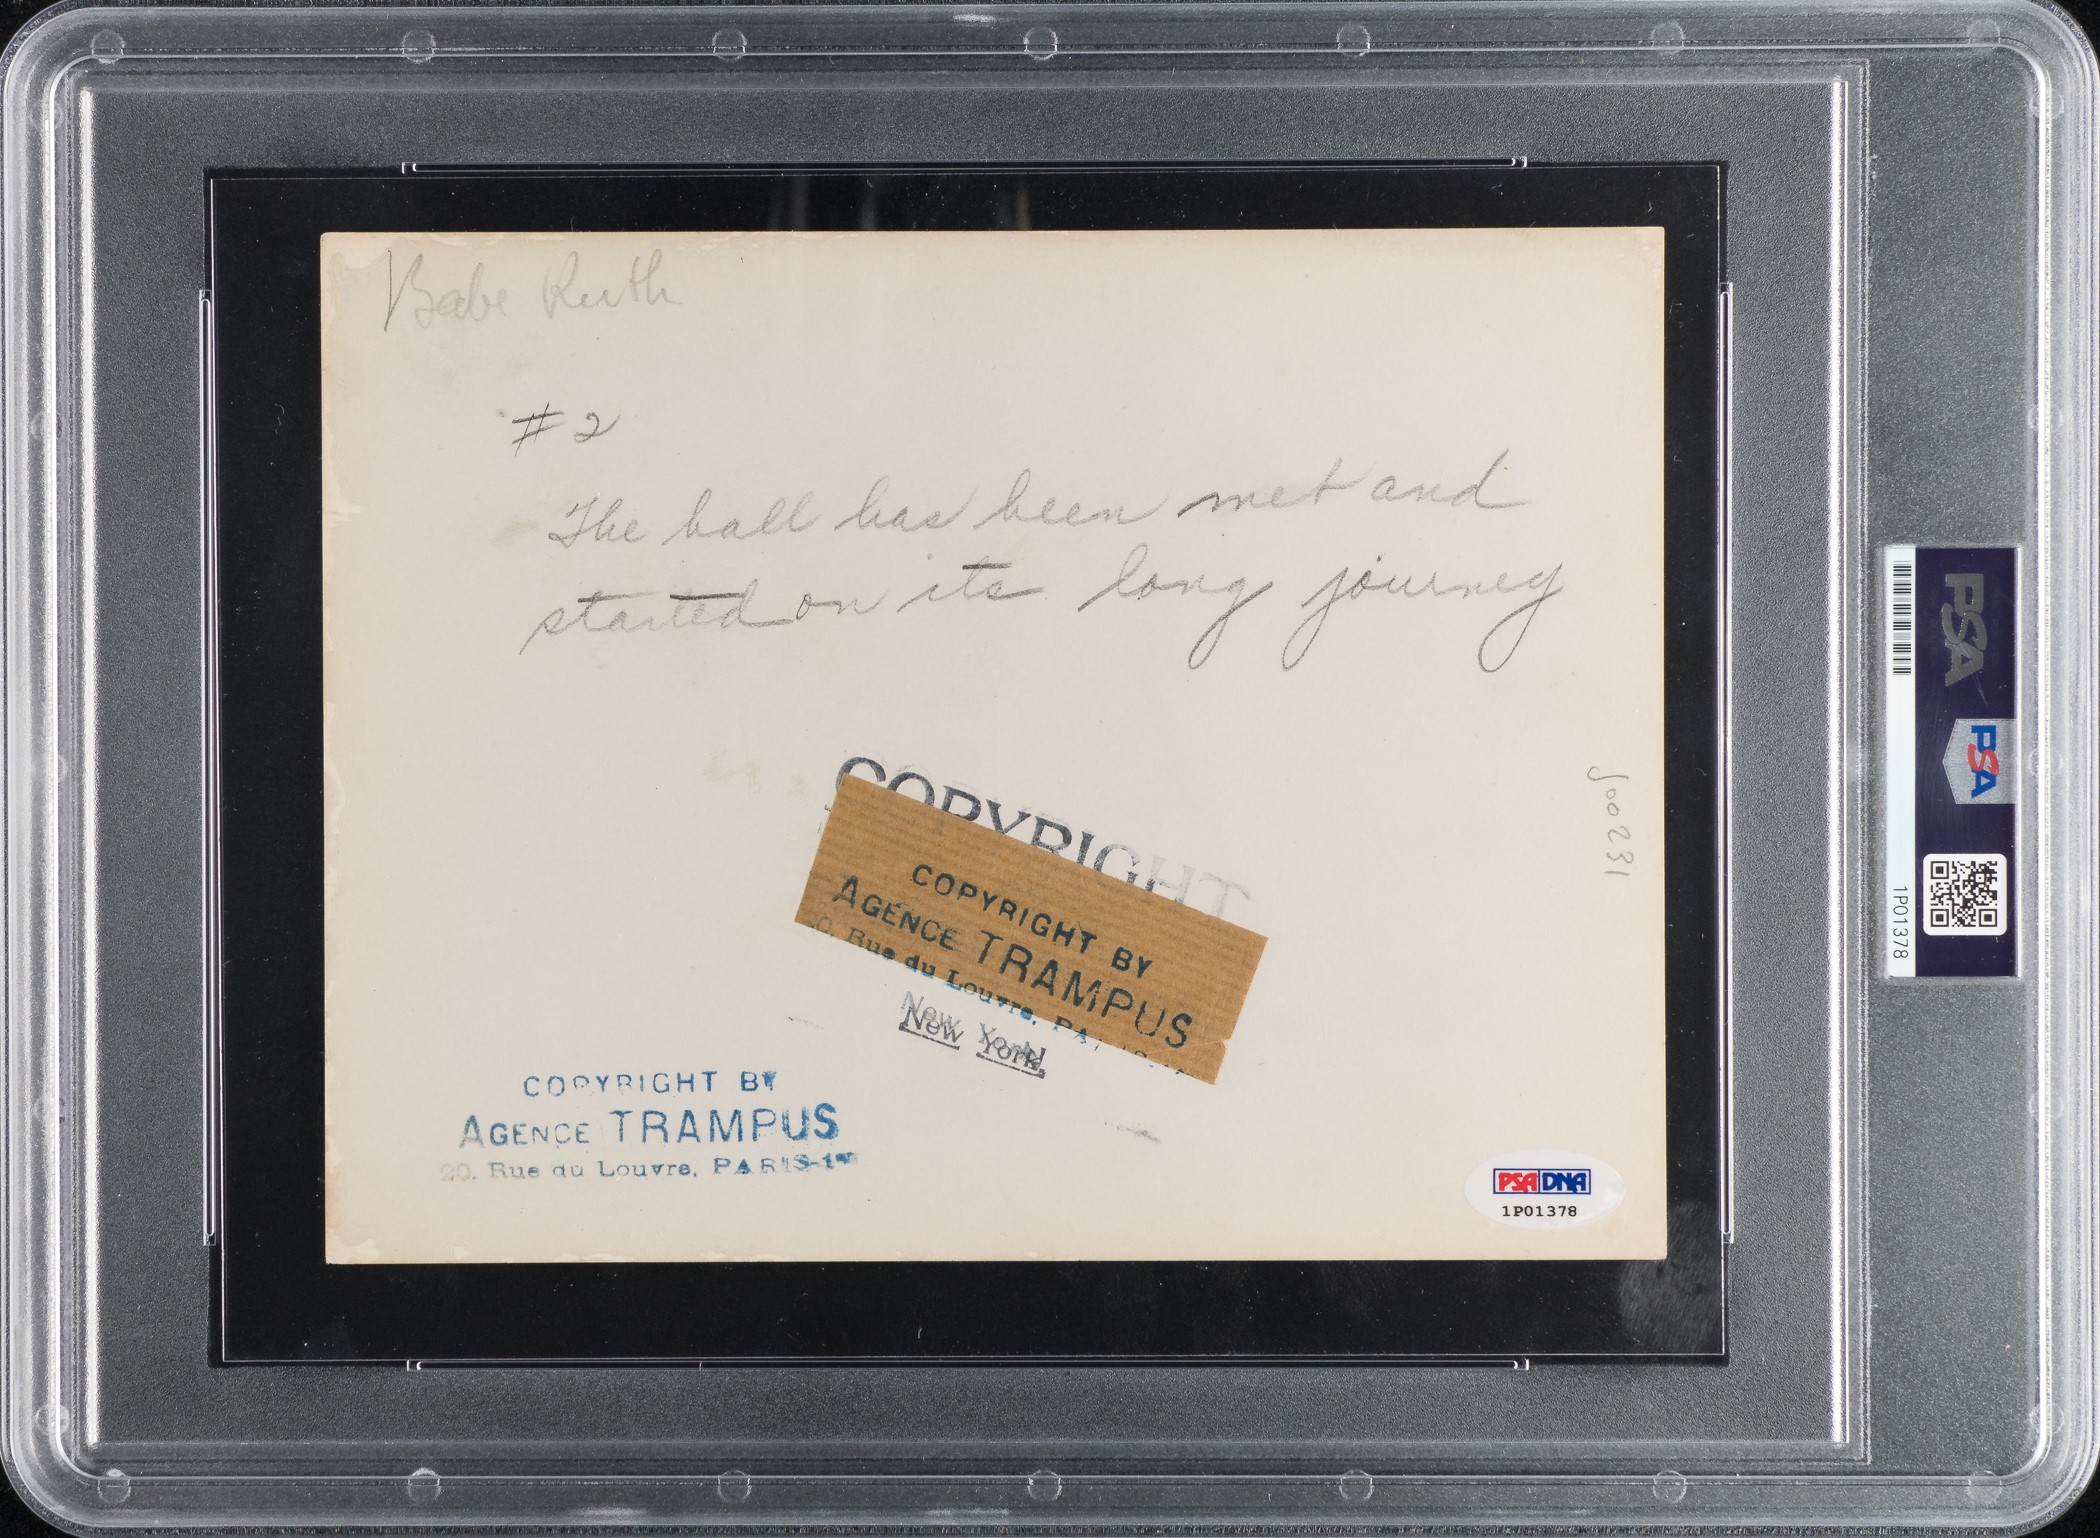 Babe Ruth
#2
The ball has been met and
started on its long journey
COPYRIGHT
COPYRIGHT BY
AGENCE TRAMPUS
20, Rue du Louvre, PA
New York
New York,
COPYRIGHT BY
AGENCE TRAMPUS
20, Rue du Louvre, PARIS-1er
PSA DNA
1P01378
J00231
PSA
PSA
1P01378